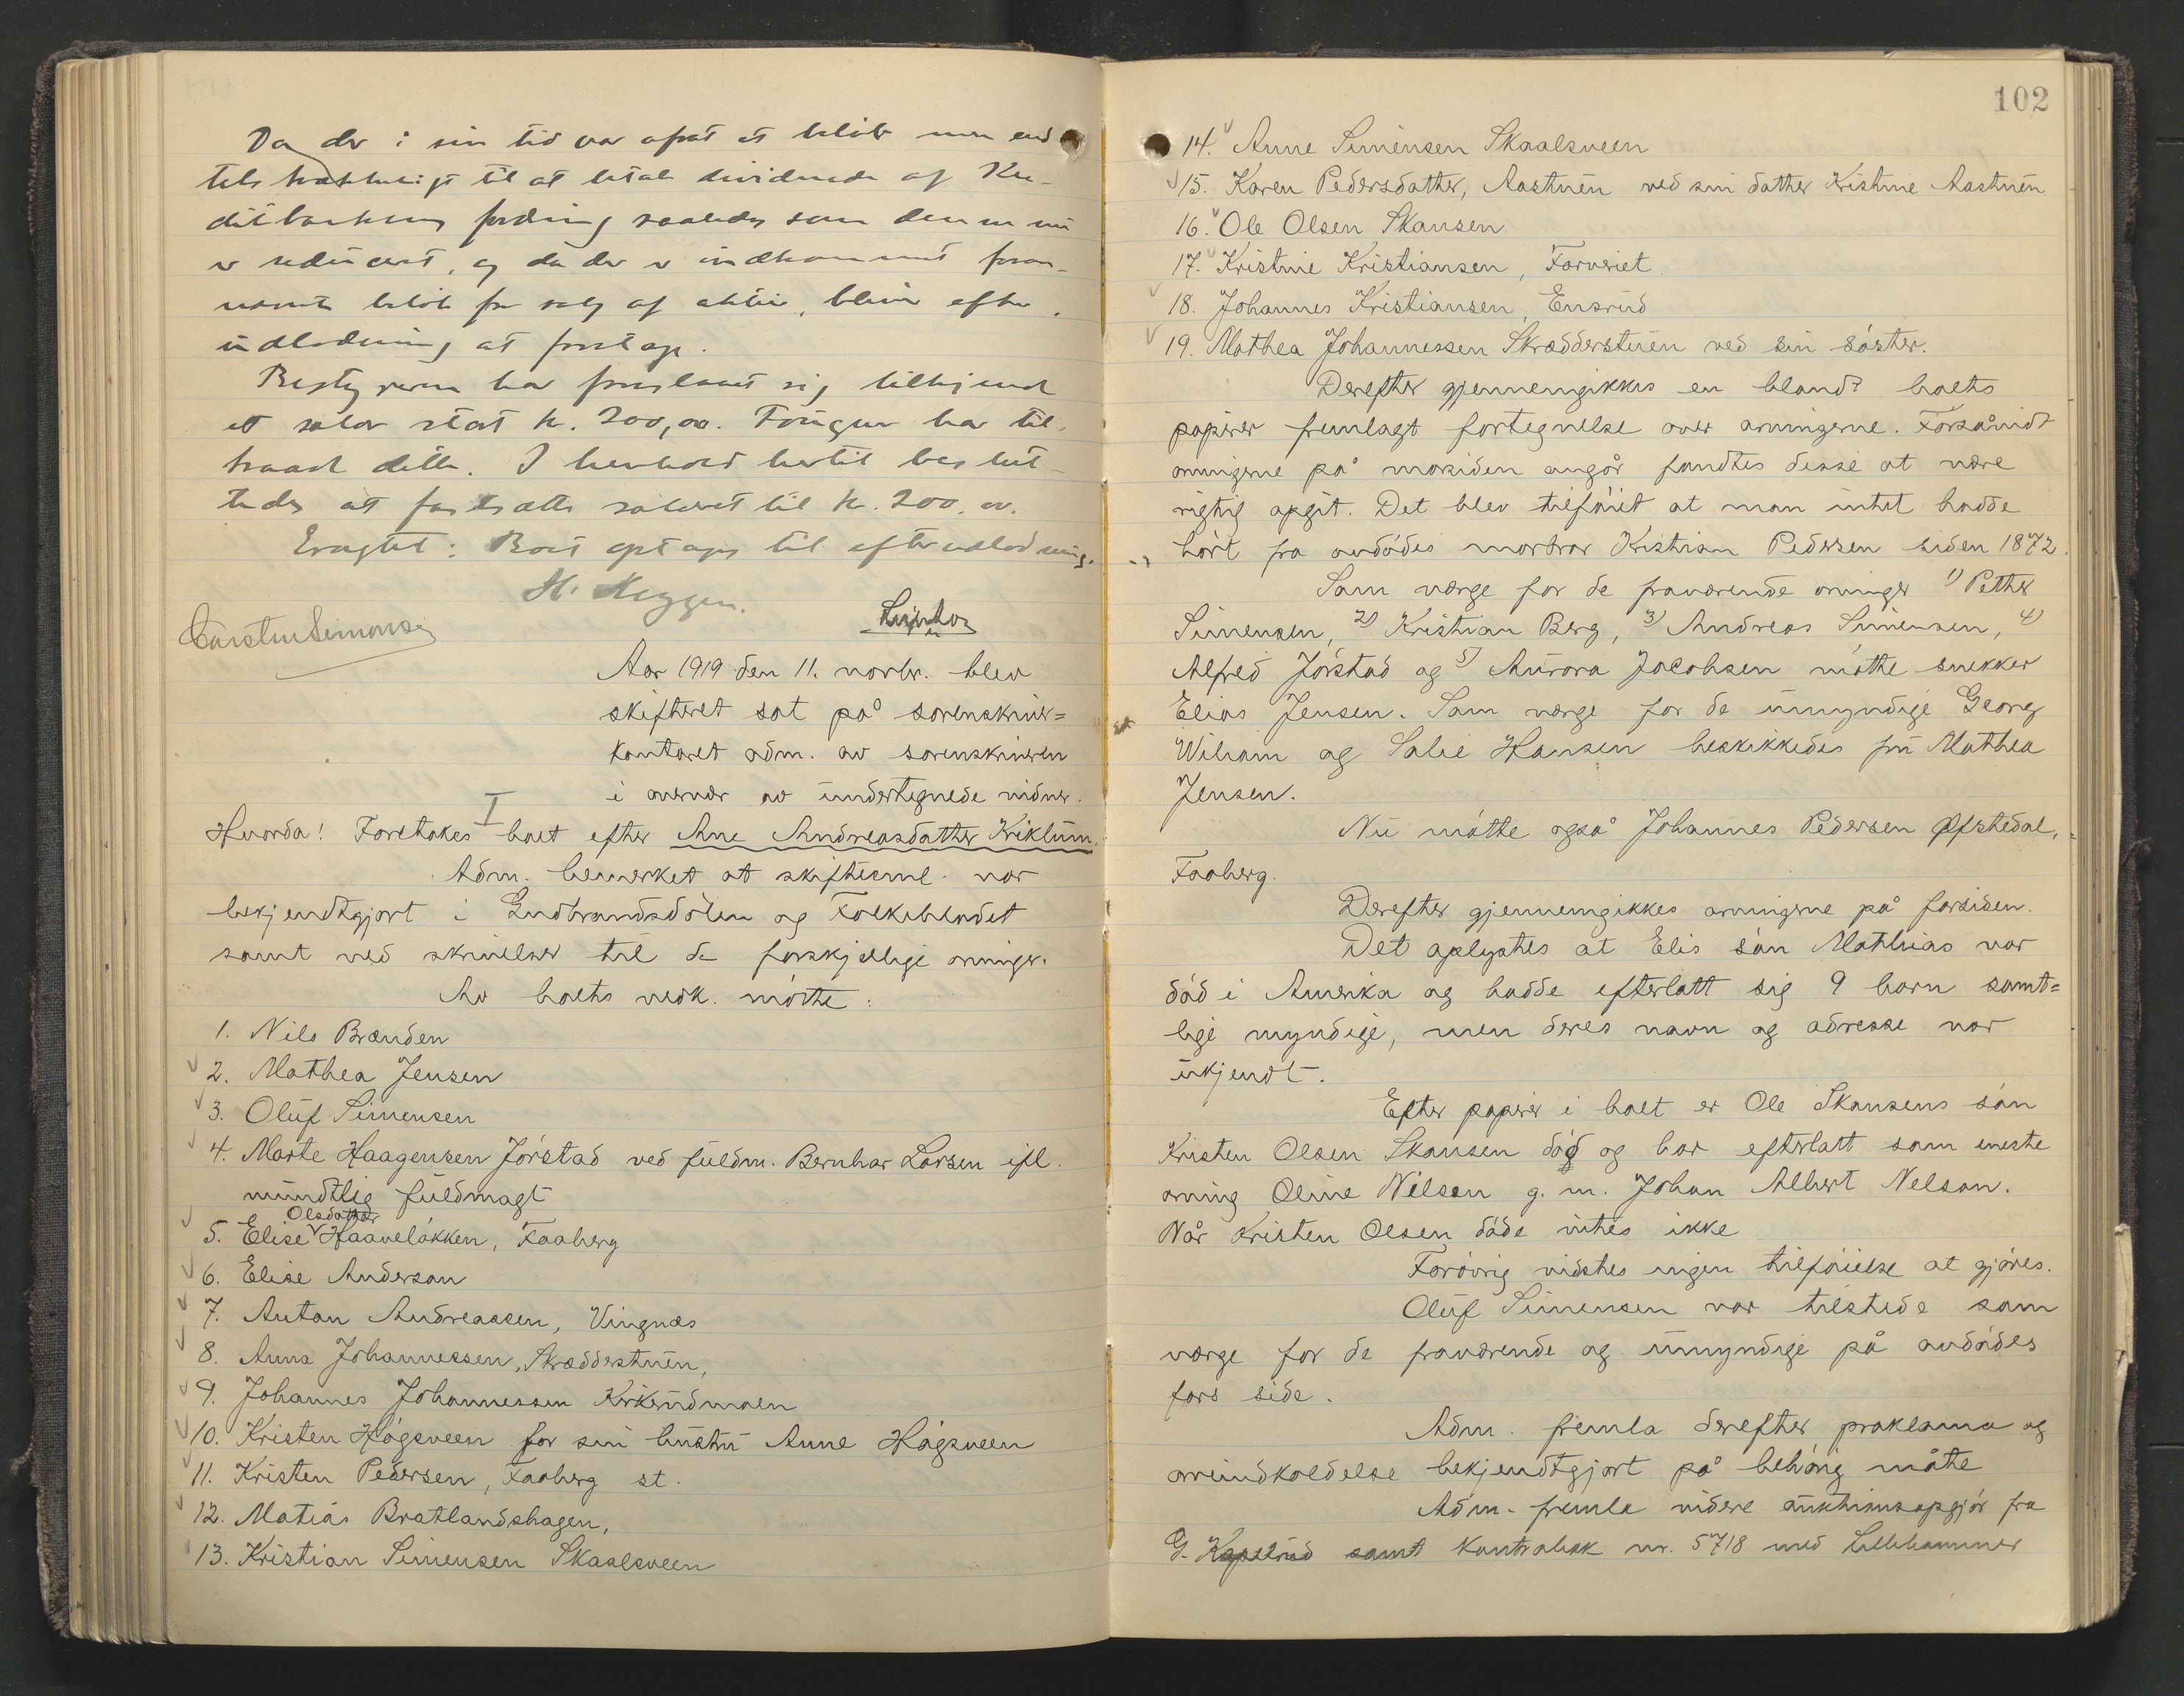 Da der i sin tid var afsat et beløb mer end
tilstrækkeligt til at betale dividende af Kre-
ditbankens fordring saaledes som denne nu
er reducert, og da der er indkommet foran-
nævnte beløb for salg af aktie, bliver efter-
utlodning at foretage.
Bestyreren har foreslaaet sig tilkjendt
et salær stort kr. 200,00. Fougner har til-
traadt dette. I henhold hertil beslut-
tedes at fastsætte salæret til kr. 200.00.
Eragtet: Boet optages til efterutlodning.
H. Meggen.
Carsten Simonsen
Aar 1919 den 11. novbr. blev
skifteret sat på sorenskriver=
kontoret adm. av sorenskriveren
i overvær av undertegnede vidner.
I
Hvorda! Foretokes boet efter Ane Andreasdatter Kriklum.
Adm. bemerket at skiftesml. var
bekjendtgjort i Gudbrandsdølen og Folkebladet
samt ved skrivelser til de forskjellige arvinger.
Av boets vedk. møtte:
1. Nils Brænden
2. Mathea Jensen
3. Oluf Simensen
4. Marte Haagensen Jørstad ved fuldm. Bernhar Larsen ifl.
mundtlig fuldmagt
Olsdatter
5. Elise Haaveløkken, Faaberg
6. Elise Anderson
7. Anton Andreassen, Vingnæs
8. Anna Johannessen, Skrædderstuen,
9. Johannes Johannessen Kirkerudmoen
10. Kristen Høgsveen for sin hustru Anne Høgsveen
11. Kristen Pedersen, Faaberg st.
12. Matias Bratlandshagen,
13. Kristian Simensen Skaalsveen
102
14. Anne Simensen Skaalsveen
15. Karen Pedersdatter, Aastuen ved sin datter Kristine Aastuen
16. Ole Olsen Skansen
17. Kristine Kristiansen, Forveriet
18. Johannes Kristiansen, Ensrud
19. Mathea Johannessen Skrædderstuen ved sin søster.
Derefter gjennemgikkes en blandt boets
papirer fremlagt fortegnelse over arvingerne. Forsåvidt
arvingerne på morsiden angår fandtes disse at være
rigtig opgit. Det blev tilføiet at man intet hadde
hørt fra avdødes morbror Kristian Pedersen siden 1872.
Som værge for de fraværende arvinger 1) Petter
Simensen, 2) Kristian Berg, 3) Andreas Simensen, 4)
Alfred Jørstad og 5) Aurora Jacobsen møtte snekker
Elias Jensen. Som værge for de umyndige Georg
Wiliam og Salie Hansen beskikkedes fru Mathea
Jensen.
Nu møtte også Johannes Pedersen Øfstedal,
Faaberg.
Derefter gjennemgikkes arvingerne på farsiden.
Det oplystes at Elis søn Mathias var
død i Amerika og hadde efterlatt sig 9 barn samt=
lige myndige, men deres navn og adresse var
ukjendt.
Efter papirer i boet er Ole Skansens søn
Kristen Olsen Skansen død og har efterlatt som eneste
arving Oline Nilsen g. m. Johan Albert Nelson.
Når Kristen Olsen døde vites ikke
Forøvrig vidstes ingen tilføielse at gjøres.
Oluf Simensen var tilstede som
værge for de fraværende og umyndige på avdødes
fars side.
Adm. fremla derefter proklama og
arveindkaldelse bekjendtgjort på behørig måte
Adm. fremla videre auktionsopgjør fra
G. Kapelrud samt kontrabok nr. 5718 med Lillehammer